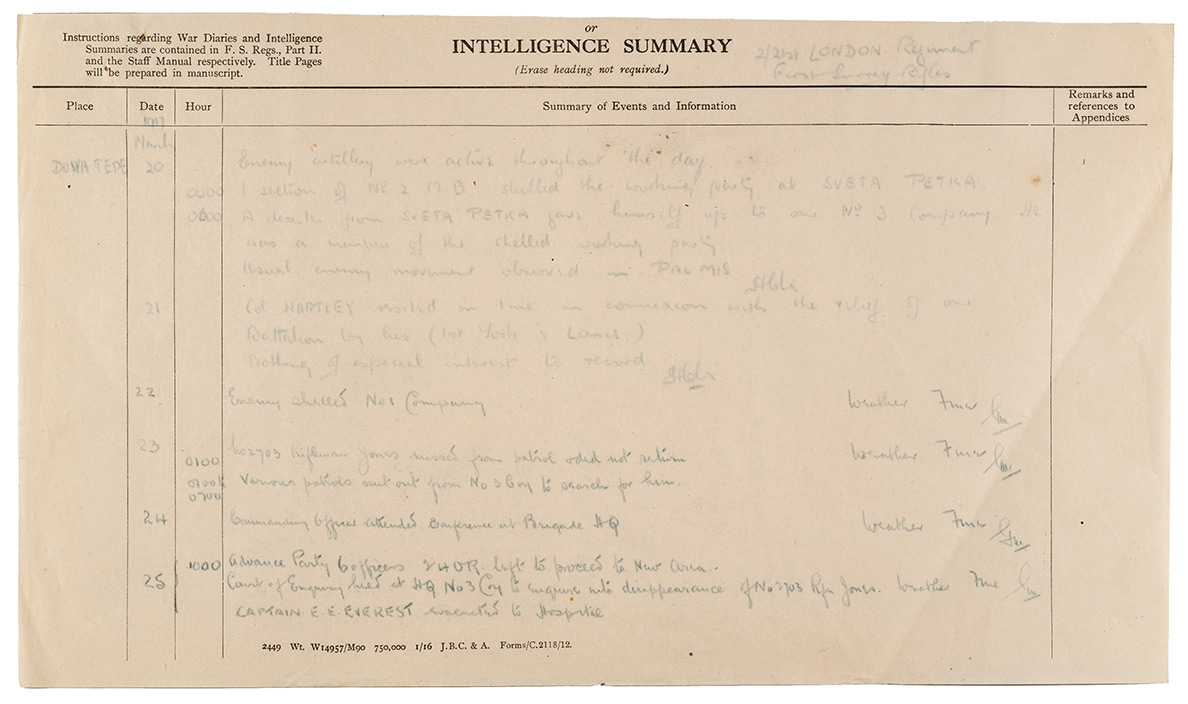 Instructions regarding War Diaries and Intelligence
Summaries are contained in F. S. Regs., Part II.
and the Staff Manual respectively. Title Pages
will be prepared in manuscript.
or
INTELLIGENCE SUMMARY
(Erase heading not required.)
2/21st LONDON Regiment
First Surrey Rifles
Place Date Hour Summary of Events and Information Remarks and references to Appendices
1917
March
20 Enemy artillery were active throughout the day.
1 section of No 2 M.B. shelled the working party at SVETA PETKA
0600 A deserter from SVETA PETKA gave himself up to our No 3 Company. He
was a member of the shelled working party.
Usual enemy movement observed in PALMIS
21 Col HARTLEY visited in line in connexion with the relief of our
Battalion by his (1st York & Lancs.)
Nothing of especial interest to record
22 Enemy shelled No 1 Company Weather Fine
23 0100 No 2703 Rifleman Jones missed from patrol & did not return Weather Fine
0700 Various patrols sent out from No 3 Coy to search for him.
24 Commanding Officer attended Conference at Brigade HQ Weather Fine
1000 Advance Party 6 officers 24 OR. left to proceed to New Area.
25 Court of Enquiry held at HQ No 3 Coy to enquire into disappearance of No 2703 Rfn Jones. Weather Fine
CAPTAIN E. E. EVEREST evacuated to Hospital
2449 Wt. W14957/M90 750,000 1/16 J.B.C. & A. Forms/C.2118/12.